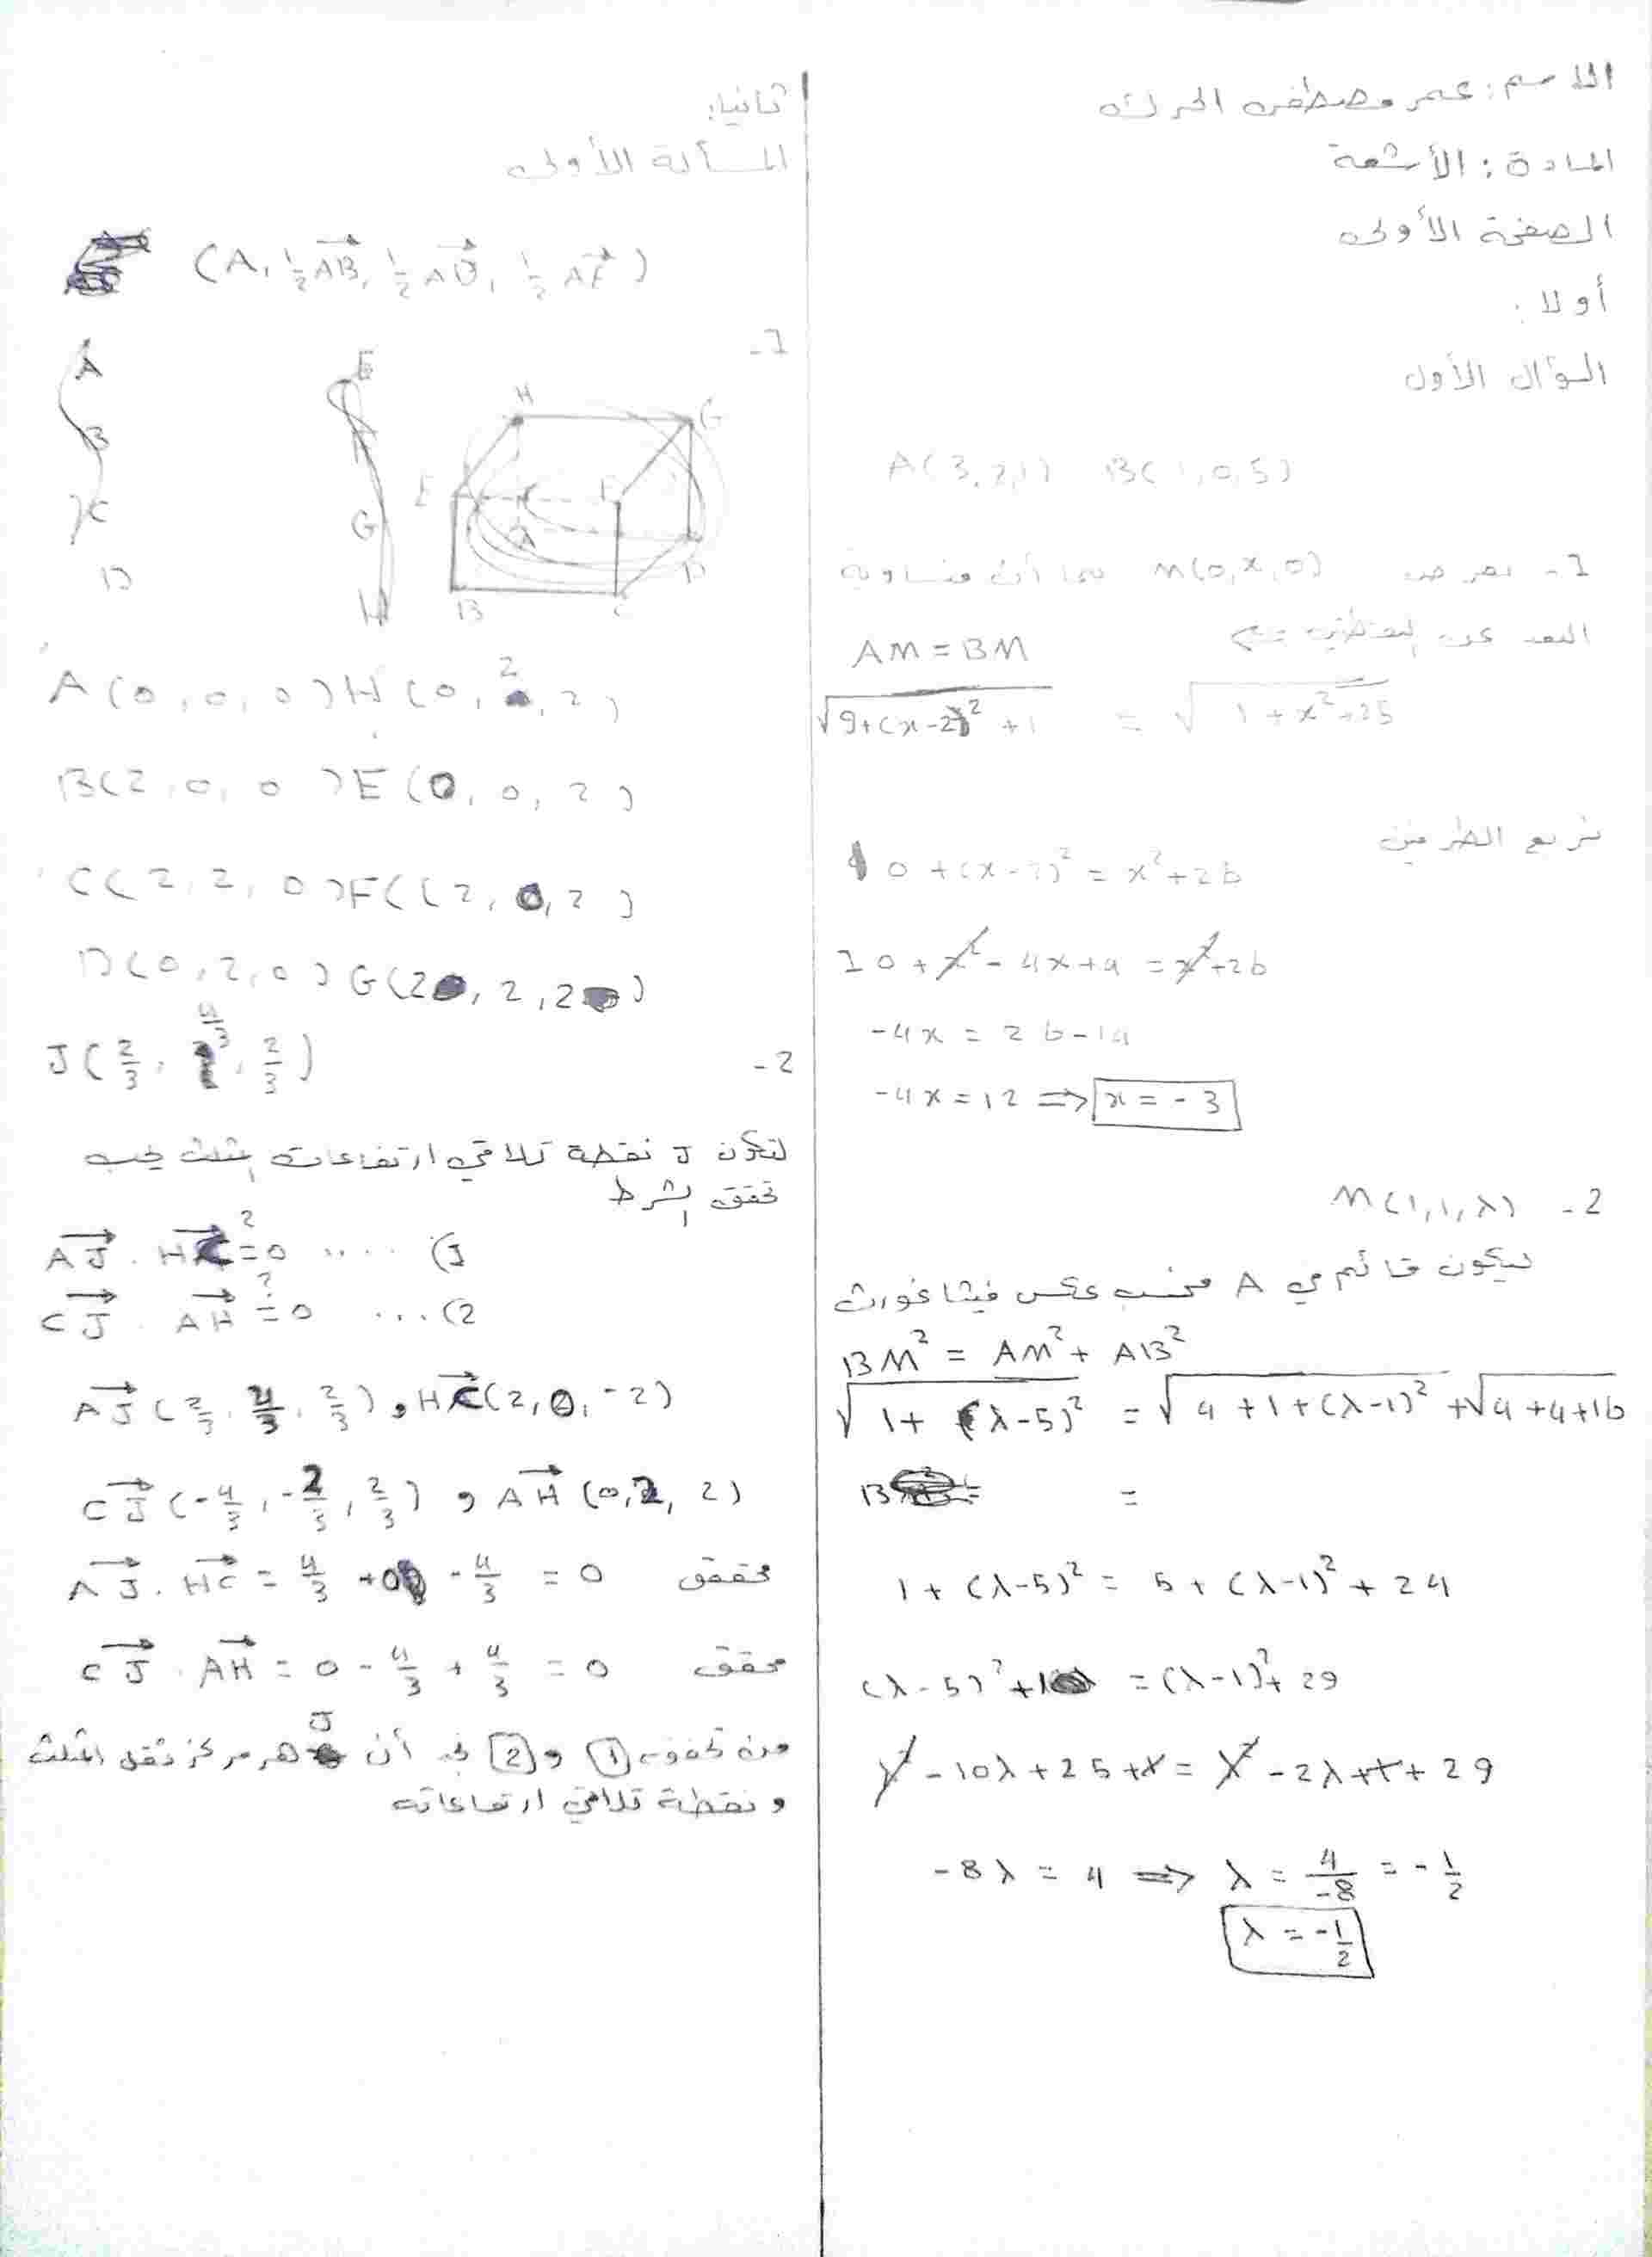 الاسم : عمر مصطفى الحرك
المادة : الأشعة
الصفحة الأولى
أولا :
السؤال الأول
A(3,2,1) B(1,0,5)
1- نفرض M(0,x,0) بما أن متساوية
البعد عن النقطتين
AM = BM
√(9+(x-2)²+1) = √(1+x²+25)
نربع الطرفين
10+(x-2)² = x²+26
10+x²-4x+4 = x²+26
-4x = 26-14
-4x=12 => x=-3
2- M(1,1,λ)
ليكون قائم في A فحسب عكس فيثاغورث
BM² = AM² + AB²
√(1+(λ-5)²) = √(4+1+(λ-1)²) + √(4+4+16)
=
1+(λ-5)² = 5+(λ-1)²+24
(λ-5)²+1 = (λ-1)²+29
λ²-10λ+25+1 = λ²-2λ+1+29
-8λ = 4 => λ = 4/-8 = -1/2
λ = -1/2
ثانيا:
المسألة الأولى
(A, 1/2 AB, 1/2 AD, 1/2 AE)
1-
A
B
C
D
E
F
G
H
H G
E F
A D
B C
A(0,0,0) H(0,2,2)
B(2,0,0) E(0,0,2)
C(2,2,0) F((2,0,2)
D(0,2,0) G(2,2,2)
2- J(2/3, 4/3, 2/3)
لتكون J نقطة تلاقي ارتفاعات المثلث يجب
تحقق الشرط
AJ . HC ?= 0 .... (1
CJ . AH ?= 0 ... (2
AJ(2/3, 4/3, 2/3) , HC(2,0,-2)
CJ(-4/3, -2/3, 2/3) , AH(0,2,2)
AJ . HC = 4/3 +0 - 4/3 = 0 محقق
CJ . AH = 0 - 4/3 + 4/3 = 0 محقق
من تحقق 1 و 2 نجد أن J هو مركز ثقل المثلث
و نقطة تلاقي ارتفاعاته